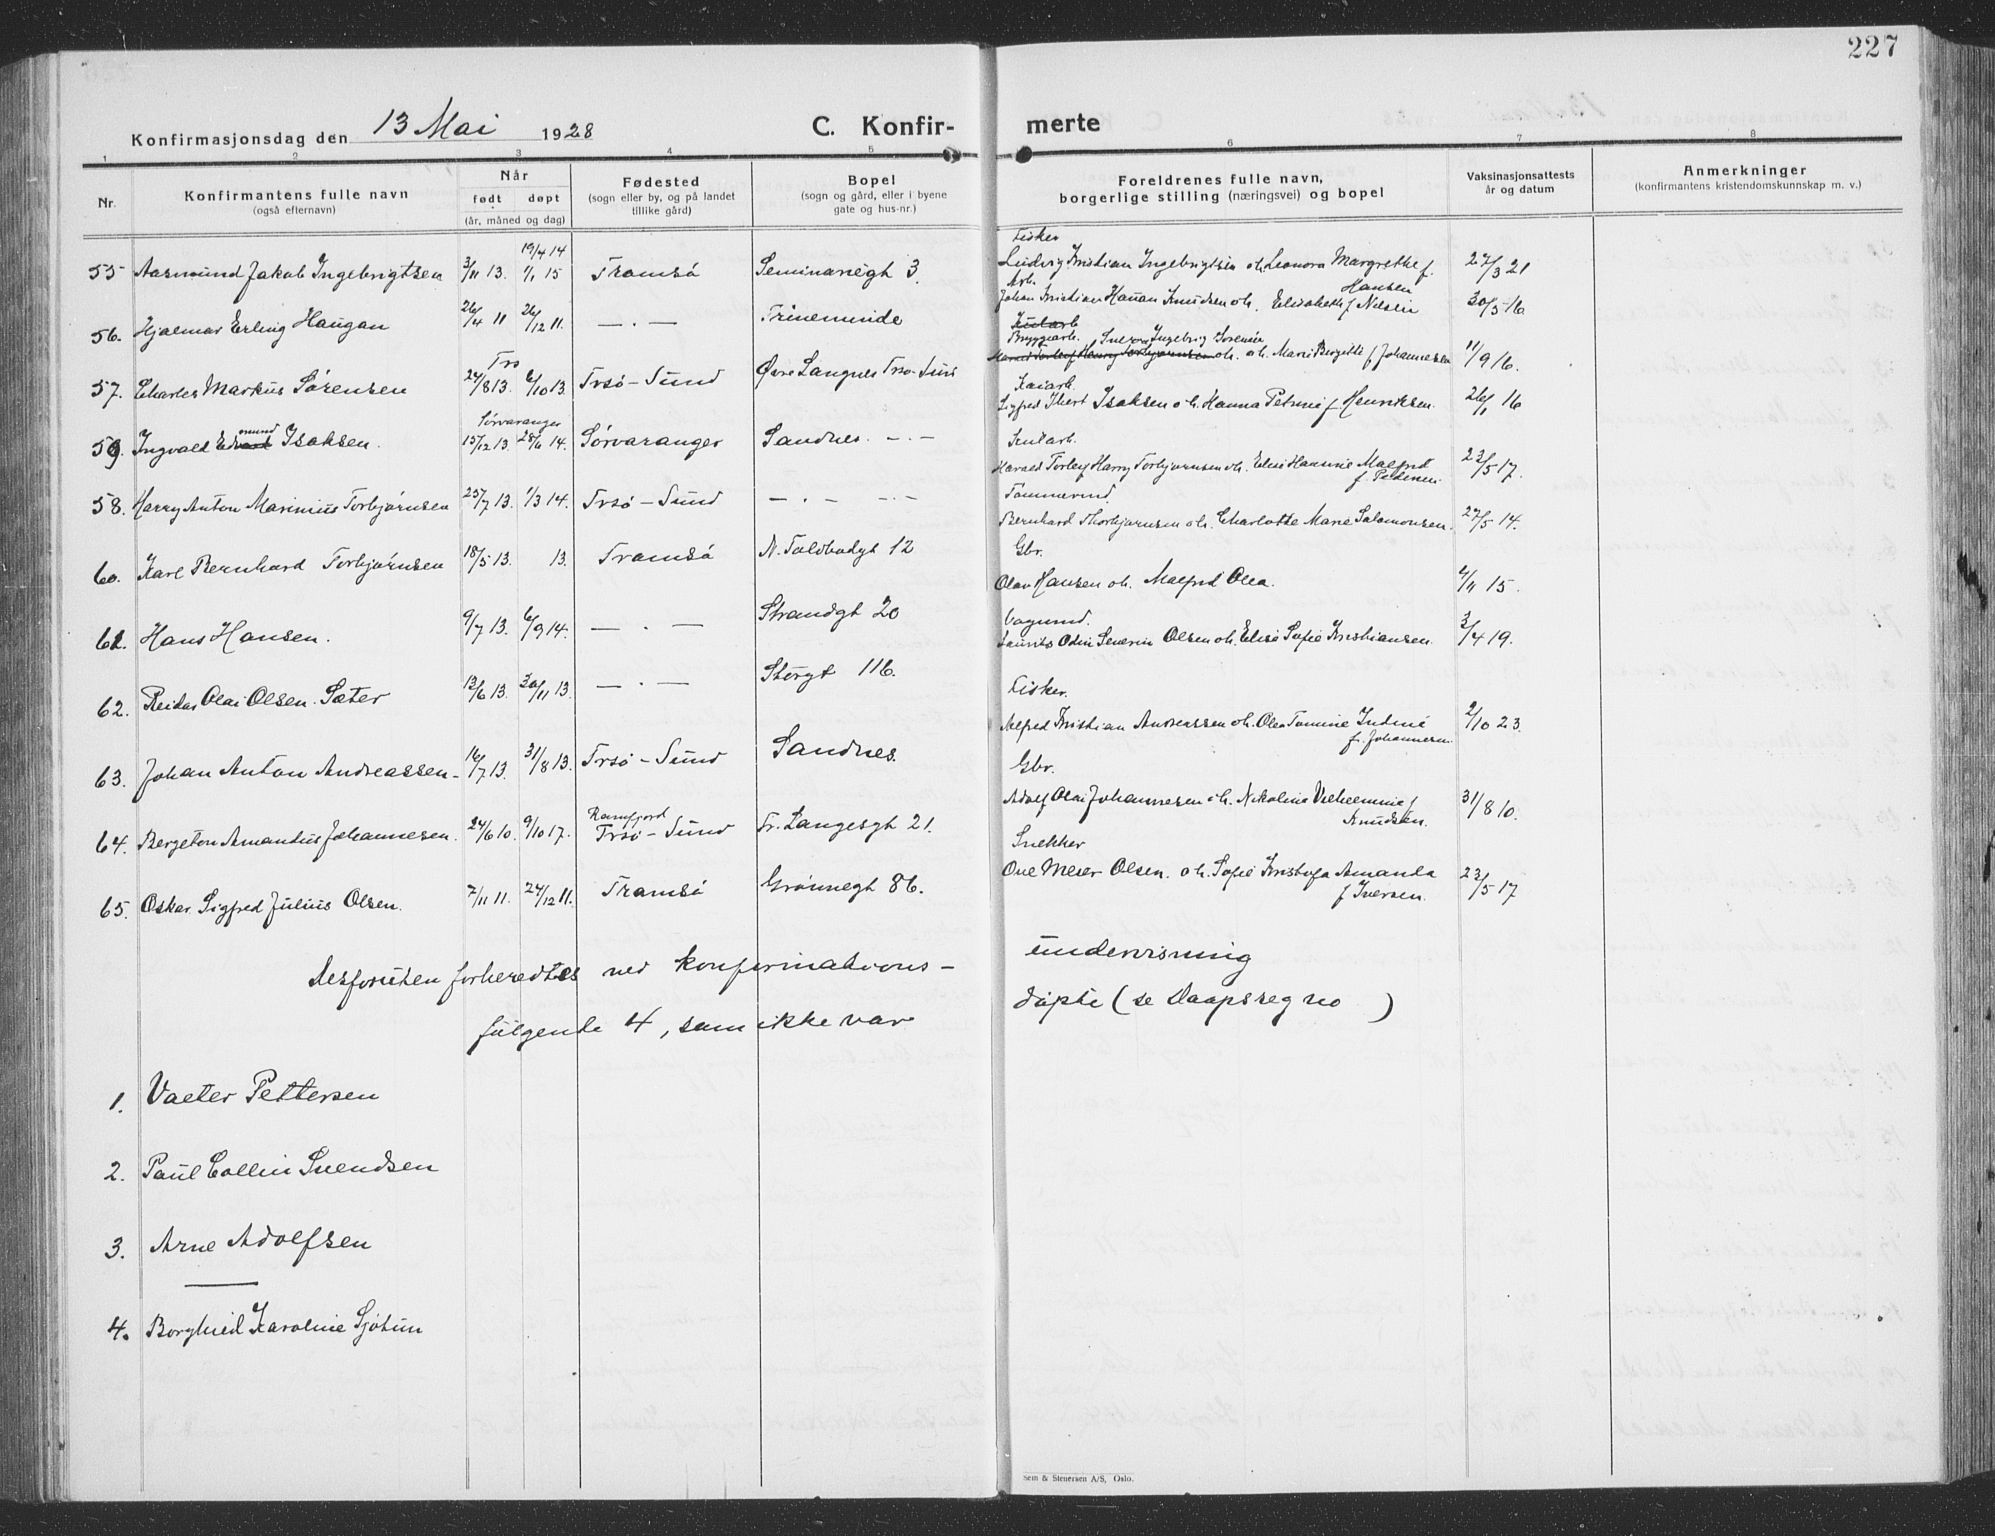 227
Konfirmasjonsdag den 13 Mai 1928
C. Konfir- merte
1 2 3 4 5 6 7 8
Nr.
Konfirmantens fulle navn
(også efternavn)
Når
født døpt
(år, måned og dag)
Fødested
(sogn eller by, og på landet
tillike gård)
Bopel
(sogn og gård, eller i byene
gate og hus-nr.)
Foreldrenes fulle navn,
borgerlige stilling (næringsvei) og bopel
Vaksinasjonsattests
år og datum
Anmerkninger
(konfirmantens kristendomskunnskap m. v.)
19/4 14
Fisker
55 Aasmund Jakob Ingebrigtsen 3/11 13. 1/1 15 Tromsö Seminariegt 3. Ludvig Kristian Ingebrigtsen o h. Leonora Margrethe f. Hansen 27/3 21
Arb.
56. Hjalmar Erling Haugan 26/4 11 26/12 11. — . — Trineminde Johan Kristian Hauan Knudsen o h. Elisabeth f Nilsen 30/5 16
Kularb
Bryggearb.
57. Charles Markus Sørensen 24/8 13. Trsö 6/10 13 Trsö-Sund Øvre Langnes Trsö-Sund Ingebrig Sörensen o h. Marie Bergitte f Johannesen 11/9 16.
Kaiarb.
Sørvaranger
59. Ingvald Edmund Isaksen. 15/12 13 28/6 14. Sörvaranger Sandnes. — . — Sigfred Ibert Isaksen o h. Hanna Petrine f Henriksen. 26/1 16
Kularb.
58. Harry Anton Marinius Torbjørnsen 25/7 13. 1/3 14. Trsö-Sund — . — Harald Torleif Harry Torbjørnsen o h. Elise Hannine Malfrid f. Pedersen 23/5 17.
Tømmermd.
60. Karl Bernhard Torbjørnsen 18/5 13. 13. Tromsö N. Toldbodgt 12 Bernhard Thorbjørnsen o h. Charlotte Marie Salomonsen. 27/5 14.
Gbr.
61. Hans Hansen. 9/7 13. 6/9 14. — . — Strandgt 20 Olav Hansen o h. Malfrid Olea. 4/11 15.
Vognmd.
62. Reidar Olai Olsen Sæter 13/6 13. 30/11 13. — . — Storgt 116. Laurits Odin Severin Olsen o h. Elise Sofie Kristiansen. 3/4 19.
Fisker.
63. Johan Anton Andreassen 16/7 13. 31/8 13. Trsö-Sund Sandnes. Alfred Kristian Andreassen o h. Olea Tomine f. Johannesen 2/10 23.
Gbr.
64. Bergeton Amandus Johannesen. 24/6 10. 9/10 17. Ramfjord Trsö-Sund Fr. Langesgt 21. Adolf Olai Johannesen o h. Nikoline Vilhelmine f Knudsen. 31/8 10.
Snekker
65. Oskar Sigfred Julius Olsen. 7/11 11. 24/12 11. Tromsö Grönnegt 86. Ove Meier Olsen. o h. Sofie Kristofa Amanda f Iversen. 23/5 17
Desforuten forberedtes ved konfirmations- undervisning
fölgende 4, som ikke var döpte (se Daapsreg no )
1. Valter Pettersen
2. Paul Collin Svendsen
3. Arne Adolfsen
4. Borghild Karoline Sjötun
Sem & Stenersen A/S, Oslo.